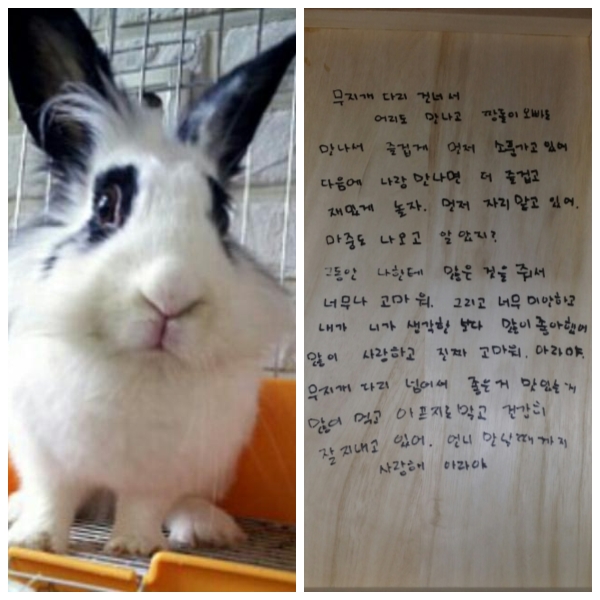 무지개 다리 건너서
어리도 만나고 깜돌이 오빠도
만나서 즐겁게 먼저 소풍가고 있어
다음에 나랑 만나면 더 즐겁고
재밌게 놀자. 먼저 자리 맡고 있어.
마중도 나오고 알았지?
그동안 나한테 많은 것을 줘서
너무나 고마워. 그리고 너무 미안하고
내가 니가 생각한 보다 많이 좋아했어
많이 사랑하고 진짜 고마워. 아라야.
무지개 다리 넘어서 좋은거 맛있는거
많이 먹고 아프지말고 건강히
잘 지내고 있어. 언니 만날때까지
사랑해 아라야